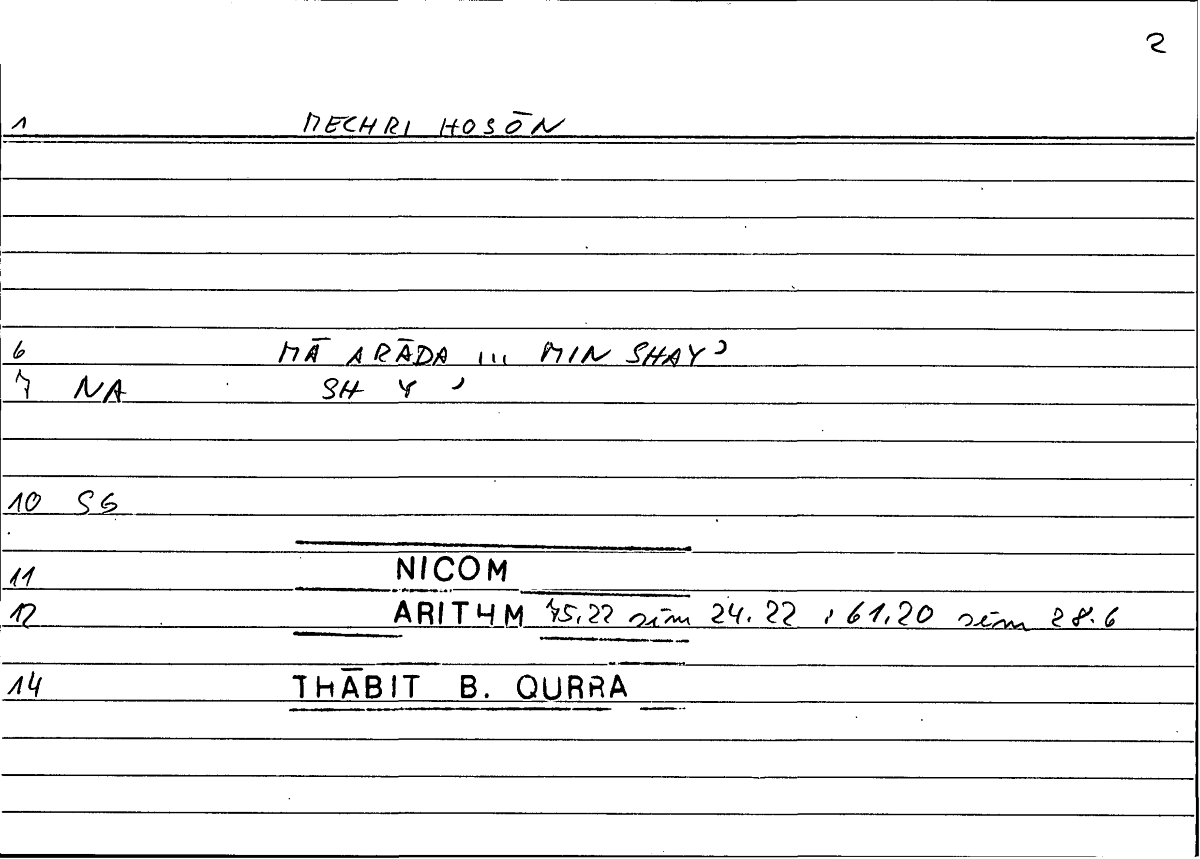 2
1 MECHRI HOSŌN
6 MĀ ARĀDA ... MIN SHAYʾ
7 NA SH Y ʾ
10 SG
11 NICOM
12 ARITHM 75.22 sim 24.22 , 61.20 sim 28.6
14 THĀBIT B. QURRA